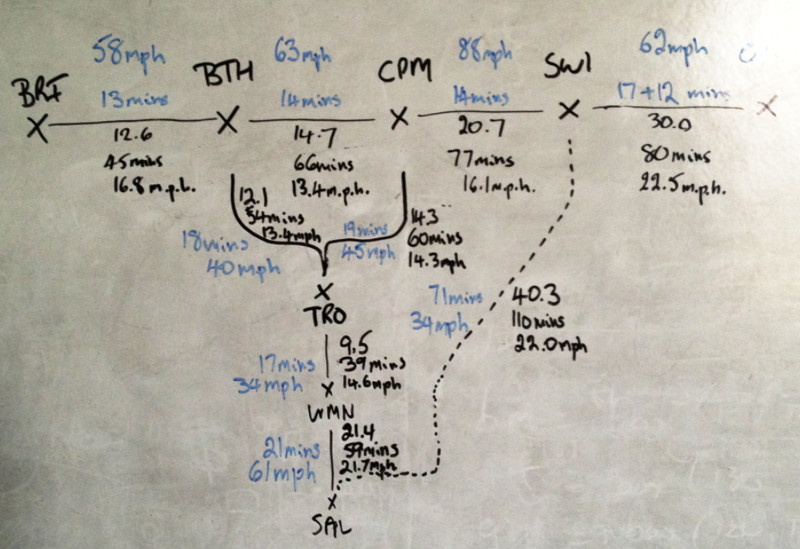 58mph 63mph 88mph 62mph
BRI BTH CPM SWI
13mins 14mins 14mins 17+12 mins
12.6 14.7 20.7 30.0
45mins 66mins 77mins 80mins
16.8 m.p.h. 13.4m.p.h. 16.1m.p.h. 22.5m.p.h.
12.1
54mins
13.4mph
18mins
40mph
19mins
45mph
14.3
60mins
14.3mph
TRO
71mins
34mph
40.3
110mins
22.0mph
17mins
34mph
9.5
39mins
14.6mph
WMN
21mins
61mph
21.4
59mins
21.7mph
SAL